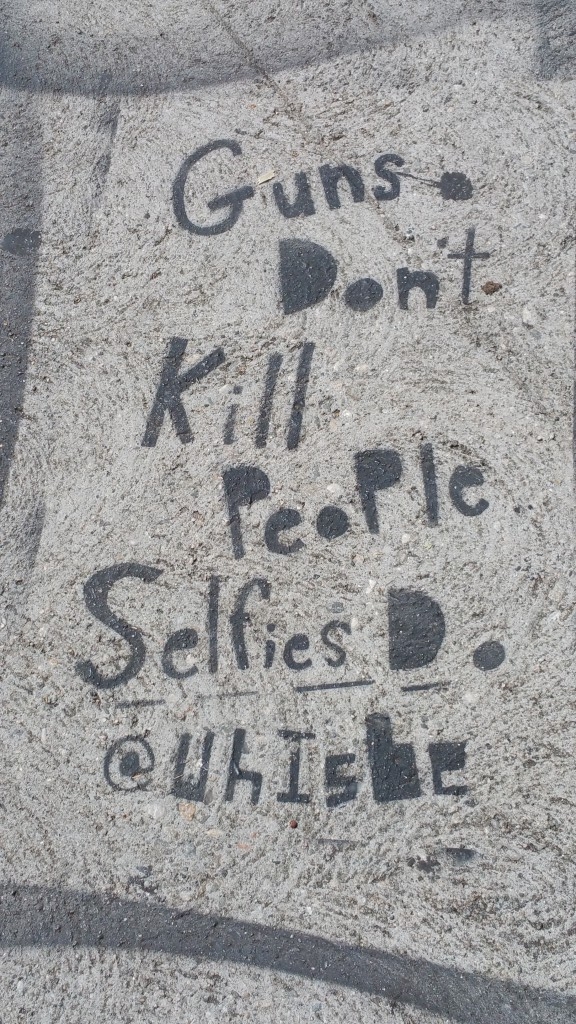 Guns.
Don't
Kill
People
Selfies D.
@WhIsbe